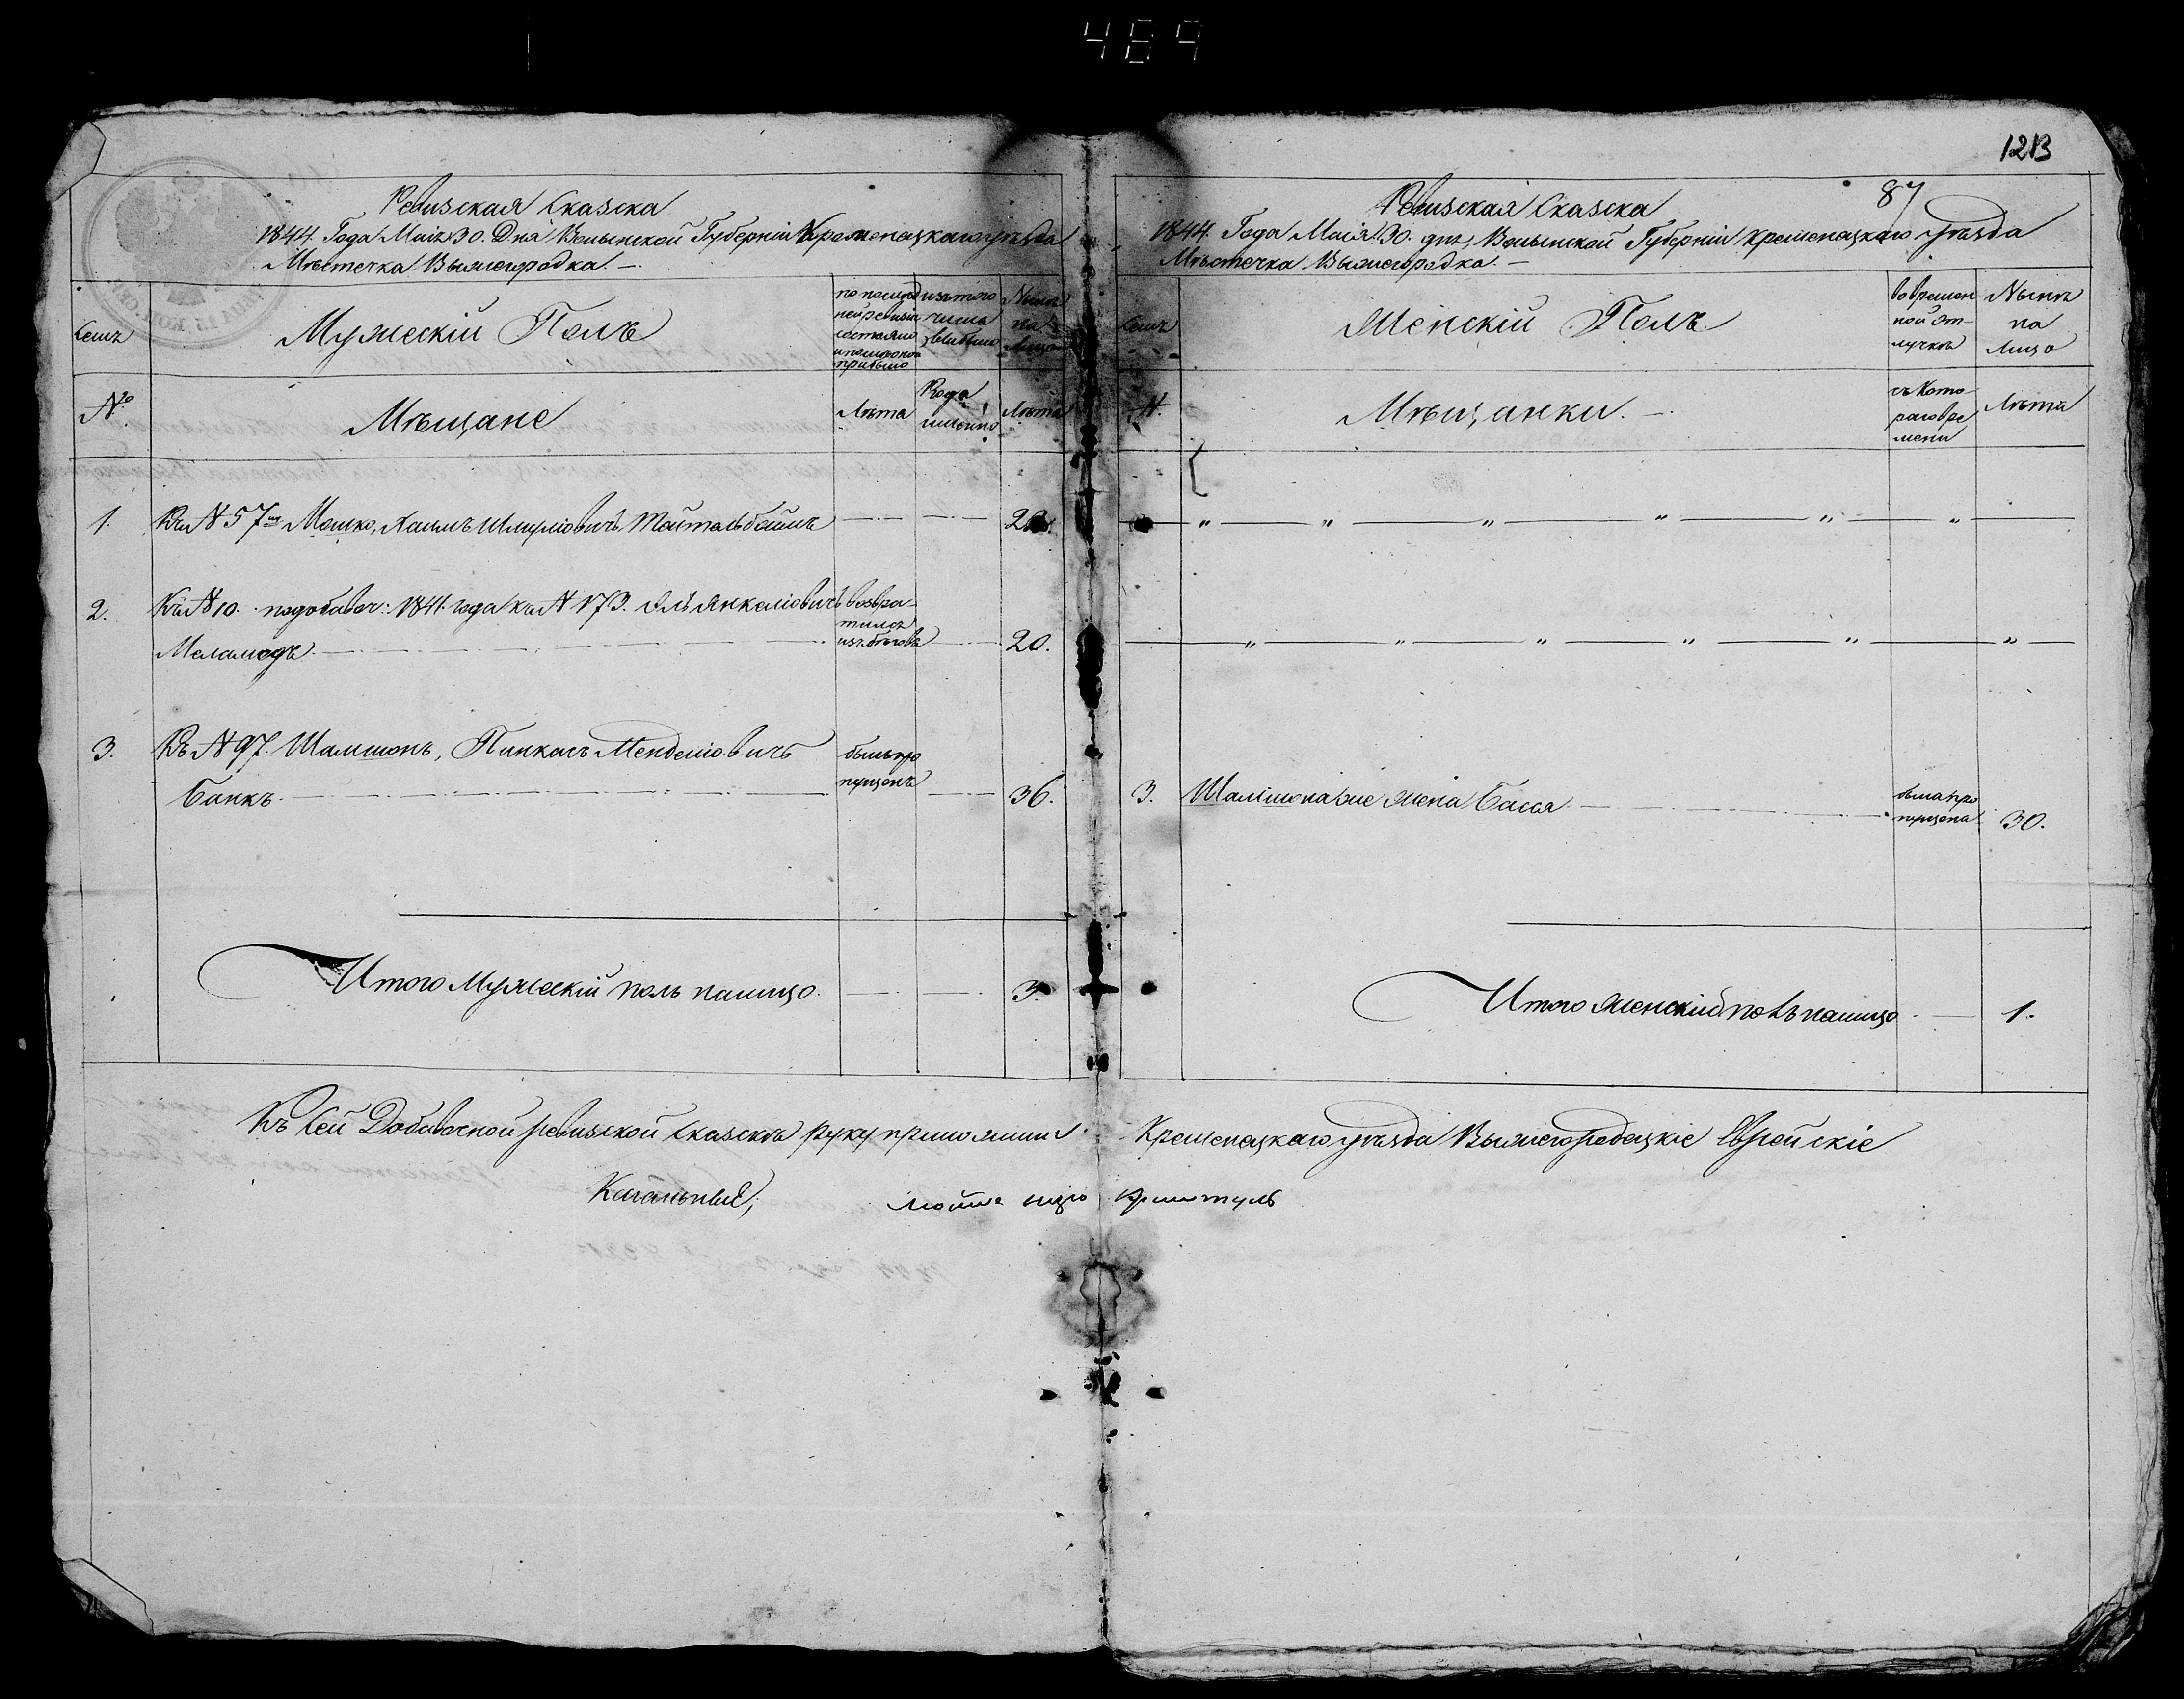 469
1213
87
Ревизская Сказка
1844. Года Маія 30. Дня Волынской Губерніи Кременецкаго уѣзда
Мѣстечка Вышегродка. —
Семъ
Мужескій Полъ
по послѣд
ней ревизіи
состояло
и послѣ оной
прибыло
изъ того
числа
выбыло
Нынѣ
на
Лицо
№
Мѣщане
Лѣта
Когда
именно
Лѣта
1. Къ № 57му Мошко, Хаимъ Шмулiовичъ 20.
2. Къ № 10. по добавоч: 1841. года къ № 173. Эль Янкеліовичъ возвра-
тился
Меламедъ изъ бѣговъ 20.
3. Къ № 97. Шамшонъ, Пинкасъ Менделіовичъ былъ про
пущенъ
Банкъ 36.
Итого Мужескій полъ на лицо 3.
Ревизская Сказка
1844. Года Маія 30. дня, Волынской Губерніи Кременецкаго уѣзда
Мѣстечка Вышегродка. —
Семъ
Женскій Полъ
во времен
ной от-
лучкѣ
Нынѣ
на
Лицо
№
Мѣщанки. —
съ Кото-
раго вре
мени
Лѣта
3. Шамшона жена Бася была про
пущена 30.
Итого женскій полъ на лицо 1.
Къ Сей Добавочной ревизской Сказкѣ руку приложили Кременецкаго уѣзда Вышегродецкіе Еврейскіе
Кагальные,